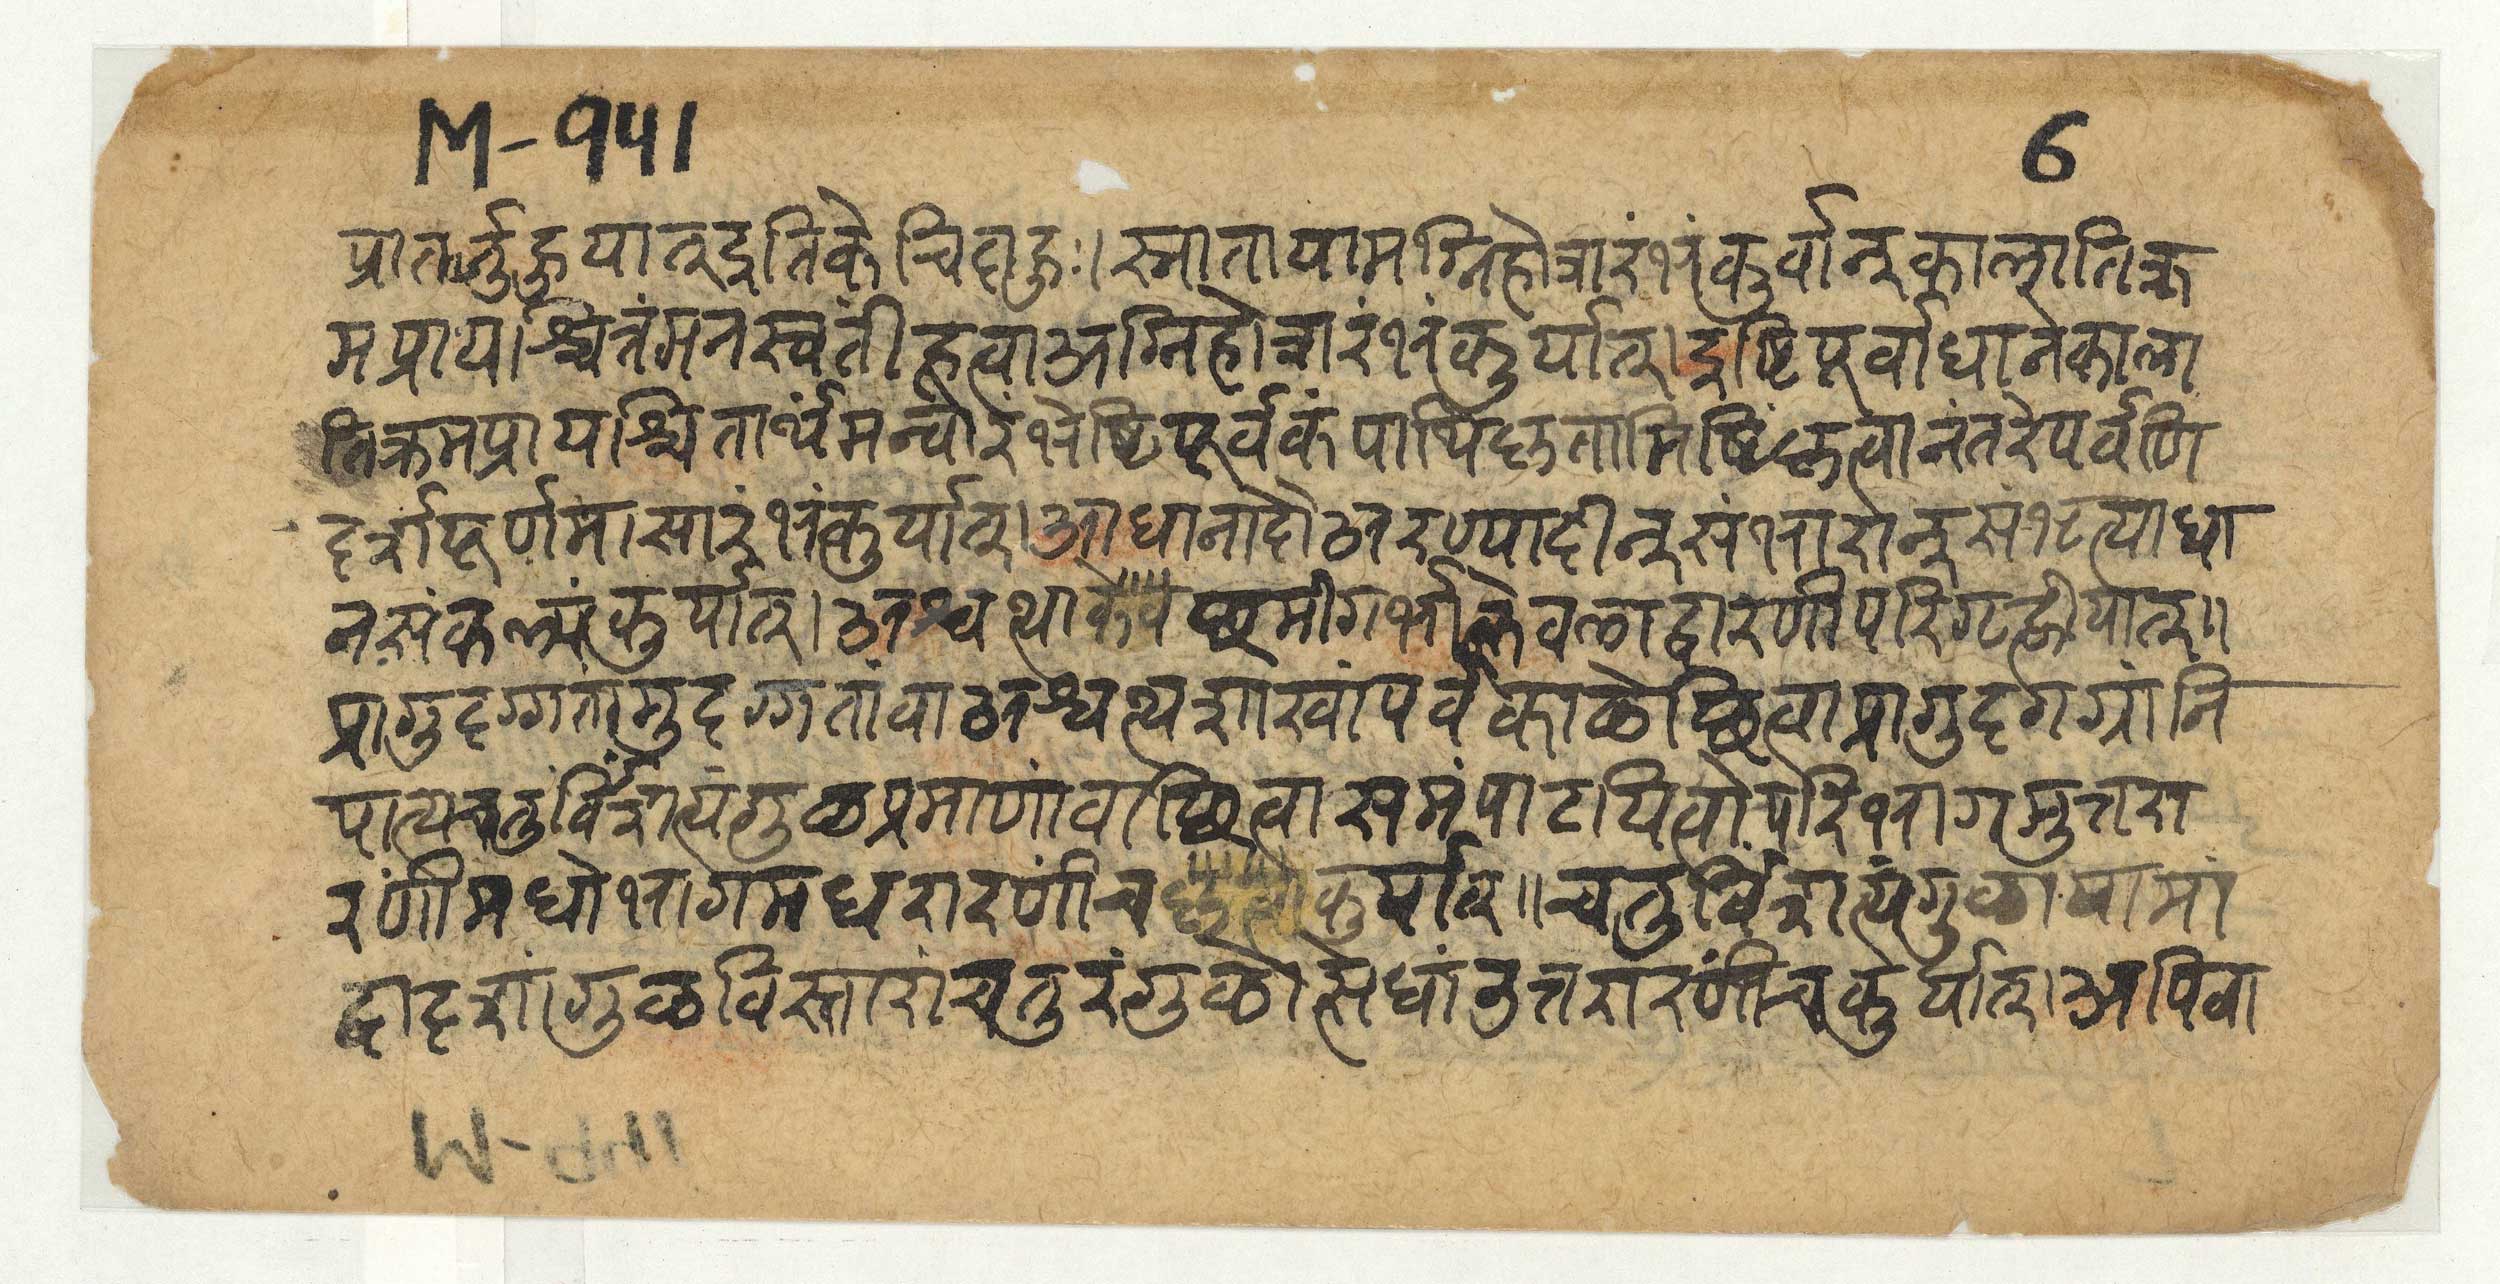 M-941
6
प्रातर्जुहुयात् इति केचिदाहुः। स्नातायामग्निहोत्रारंभं कुर्वान् कालातिक्र
मप्रायश्चित्तं मनस्वतीं हुत्वा अग्निहोत्रारंभं कुर्यात्। इष्टिपूर्वाधाने काला
तिक्रमप्रायश्चितार्थमन्वारंभेष्टिपूर्वकं पाथिकृतामिष्टिं कृत्वानंतरे पर्वणि
दर्शापूर्णमासारंभं कुर्यात्। आधानादौ अरण्यादीन् संभारान् संभृत्याधा
नसंकल्पं कुर्यात्। अश्वत्थाच्छमीगर्भात्केवलाद्वारणी परिगृह्णीयात्॥
प्रागुदग्गतामुदग्गतां वा अश्वत्थशाखां पर्वकाळे छित्वा प्रागुदगग्रां नि
पात्य चतुर्विंशत्यंगुळप्रमाणां वा छित्वा समं पाटयित्वोपरिभागमुत्तरा
रणीमधोभागमधरारणीं च कुर्यात्॥ चतुर्विंशत्यंगुळायामां
द्वादशांगुळविस्तारां चतुरंगुळोत्सेधां उत्तरारणीं च कुर्यात्। अपि वा